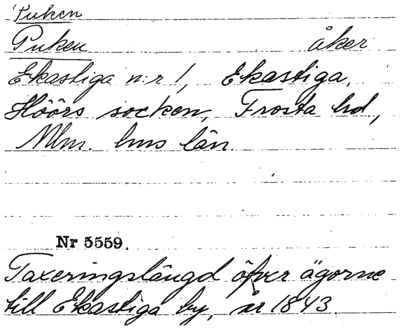 Puken
Puken åker
Ekastiga n:r 1, Ekastiga,
Höörs socken, Frosta hd,
Mlm. hus län.
Nr 5559.
Taxeringslängd öfver ägorne
till Ekastiga by, år 1843.